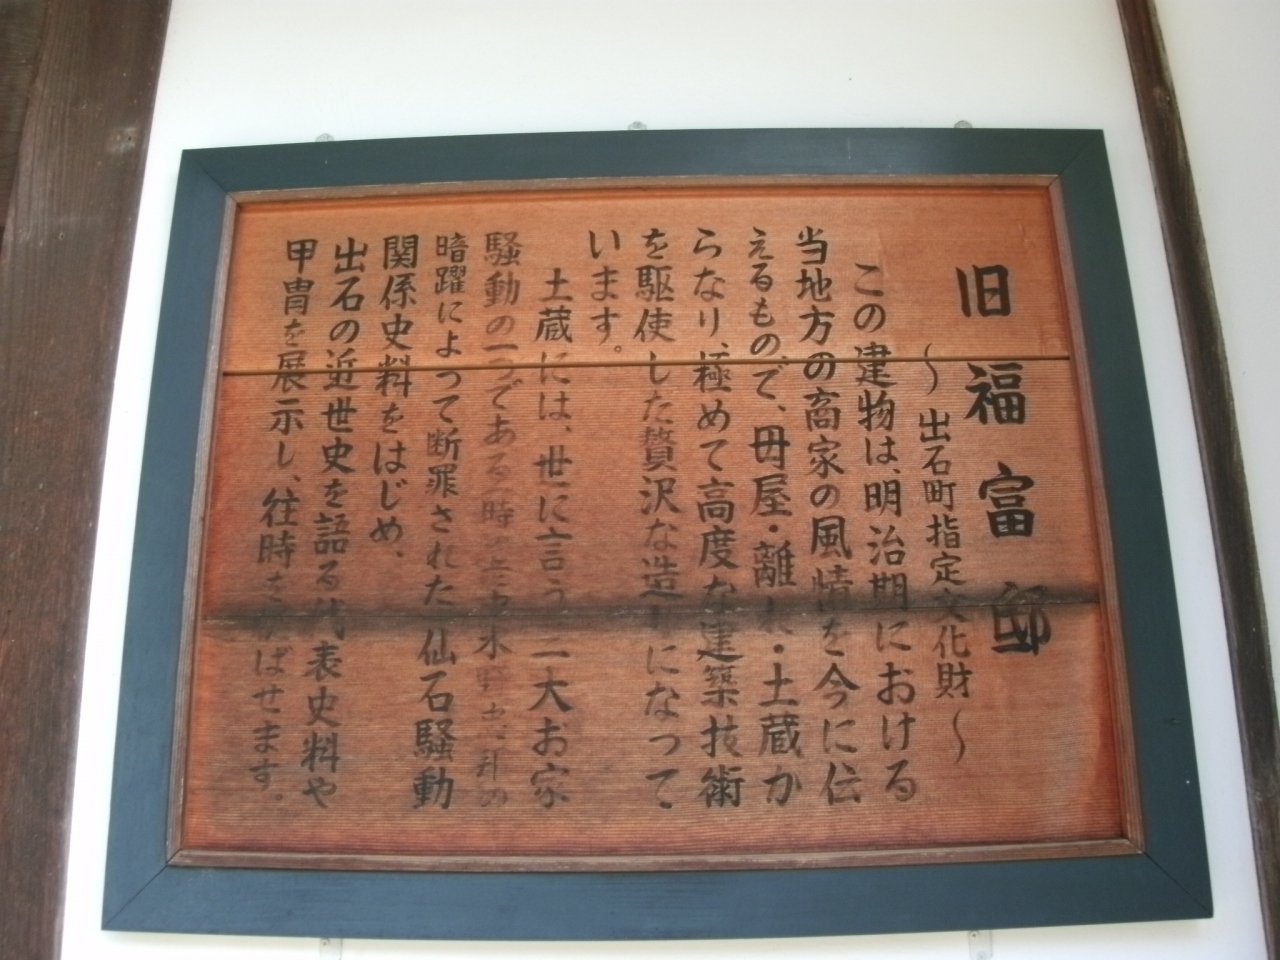 旧福富邸
～出石町指定文化財～
この建物は、明治期における
当地方の商家の風情を今に伝
えるもので、母屋・離れ・土蔵か
らなり、極めて高度な建築技術
を駆使した贅沢な造りになって
います。
土蔵には、世に言う三大お家
騒動の一つである時の老中水野出羽の
暗躍によって断罪された仙石騒動
関係史料をはじめ、
出石の近世史を語る代表史料や
甲冑を展示し、往時を偲ばせます。